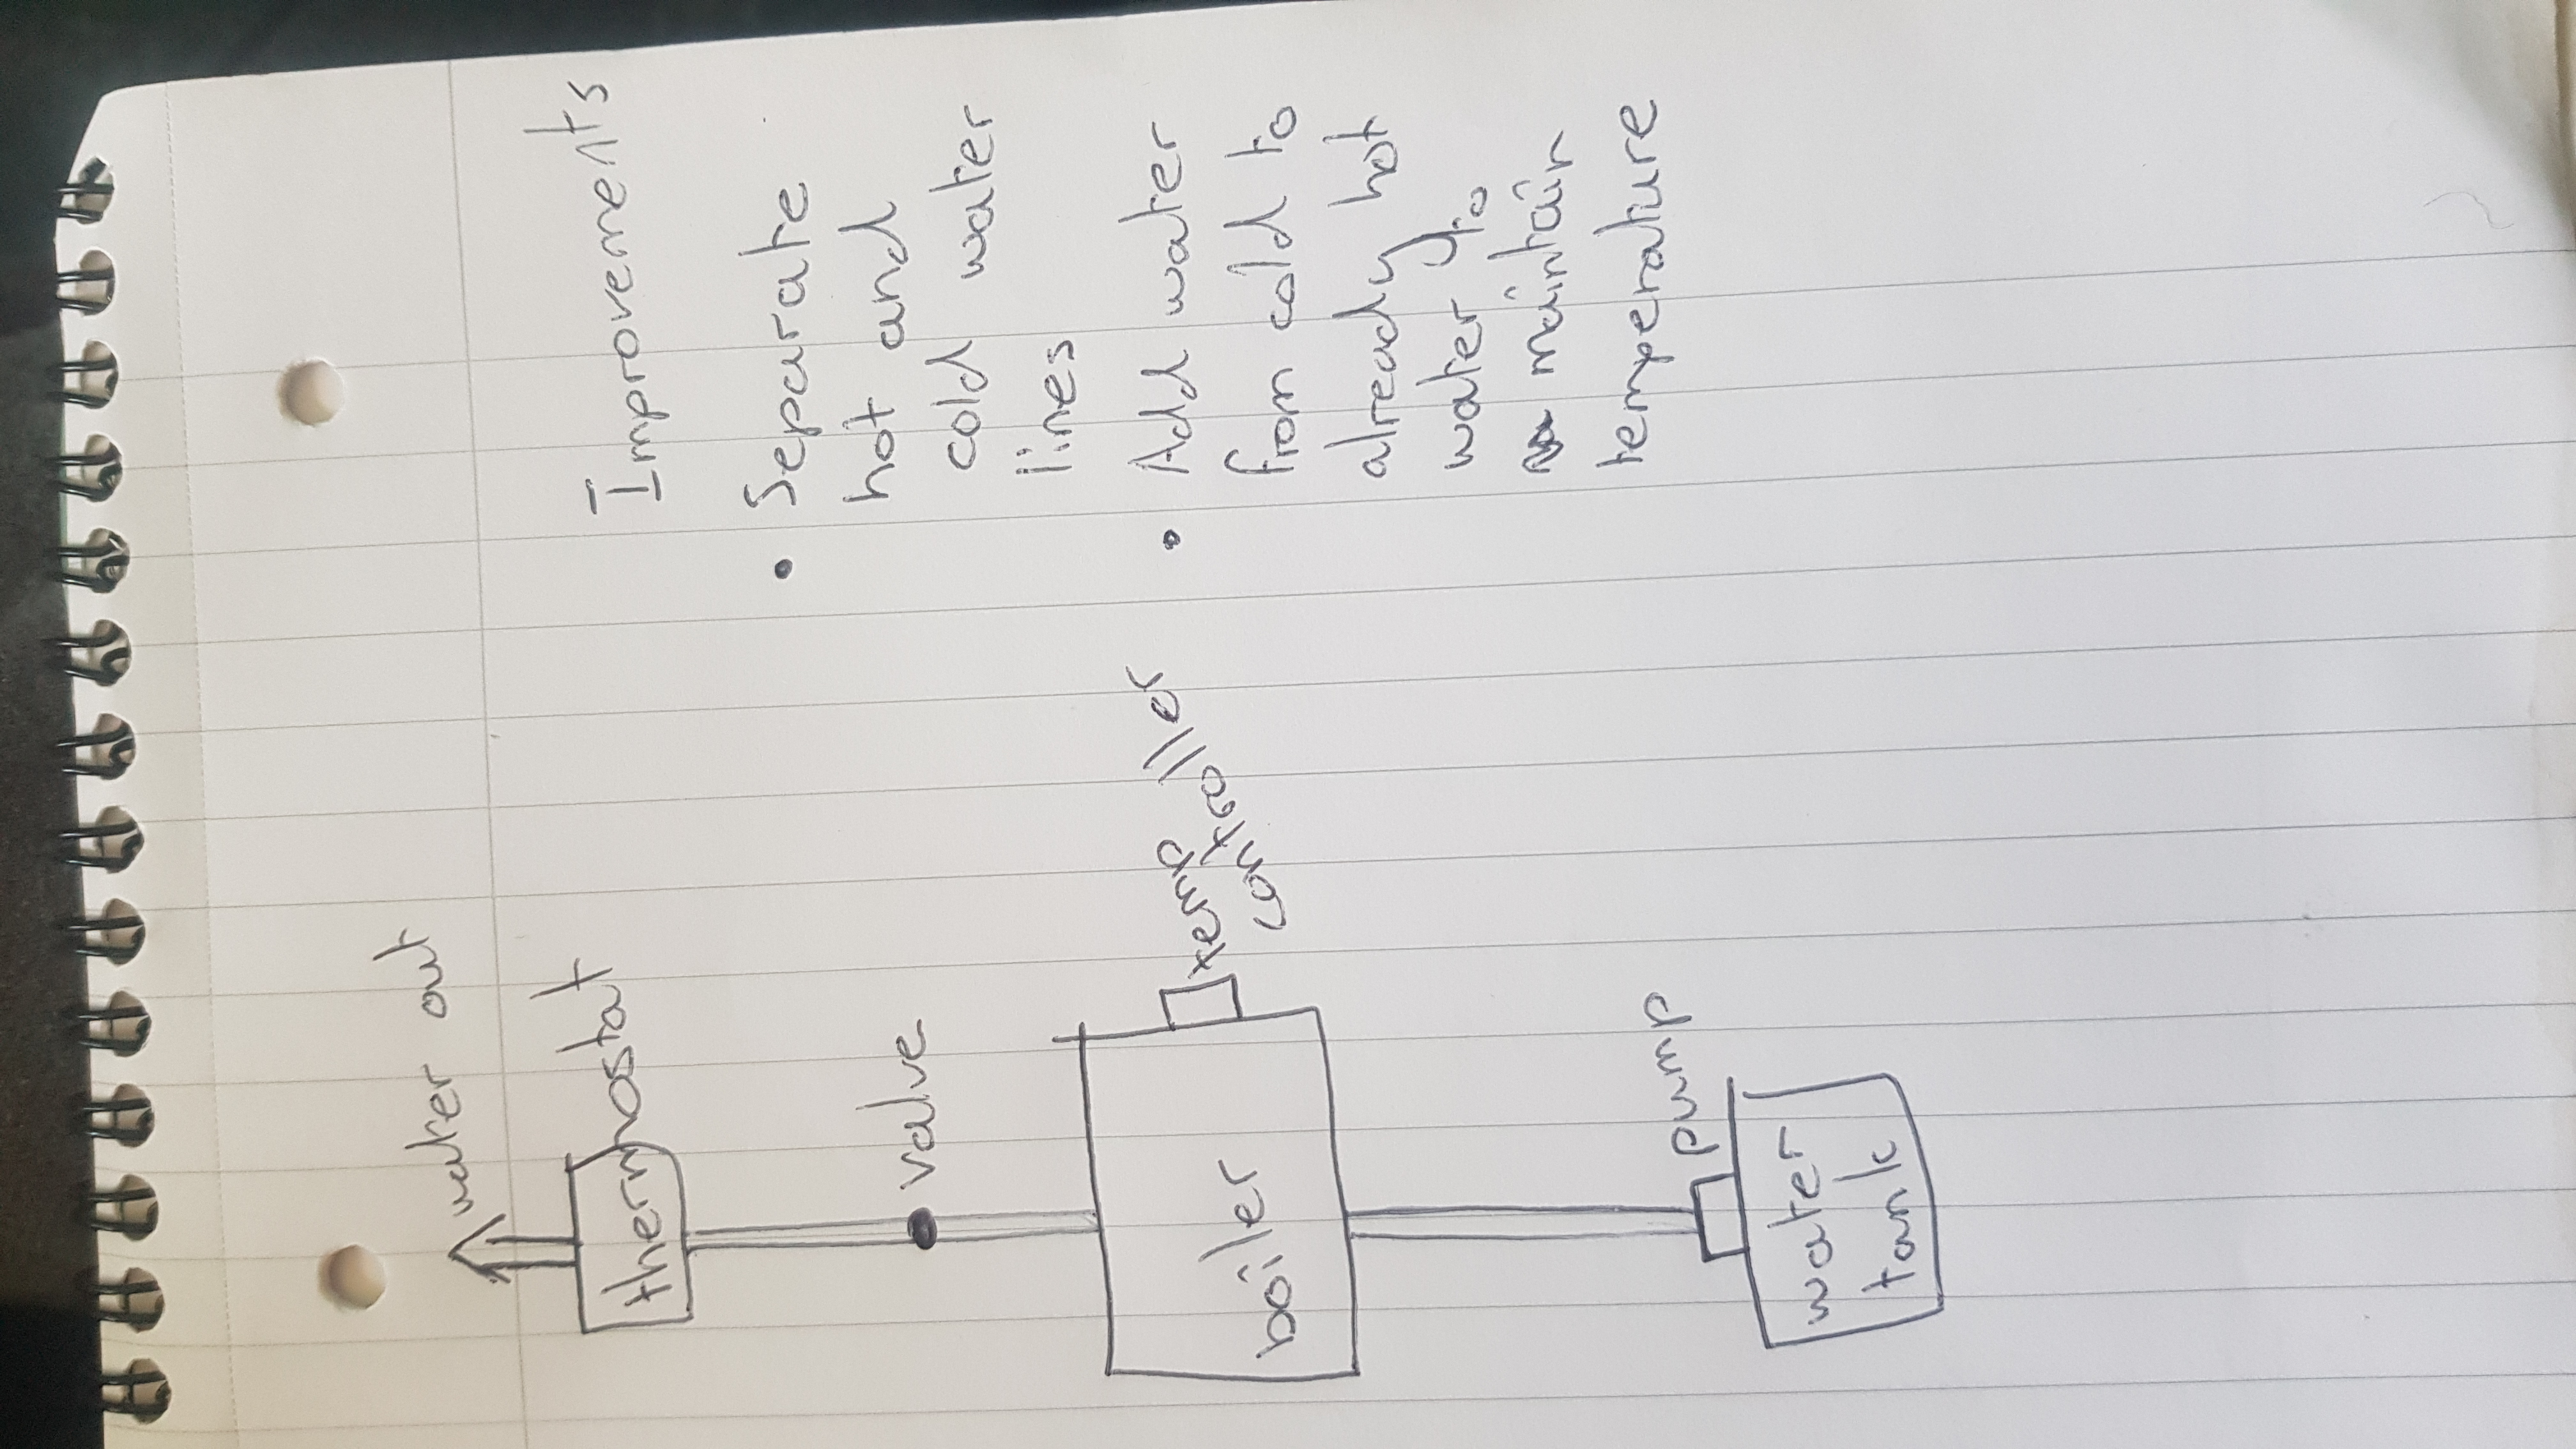 water out
thermostat
valve
boiler
temp
controller
pump
water
tank
Improvements
• Separate
hot and
cold water
lines
• Add water
from cold to
already hot
water to
maintain
temperature